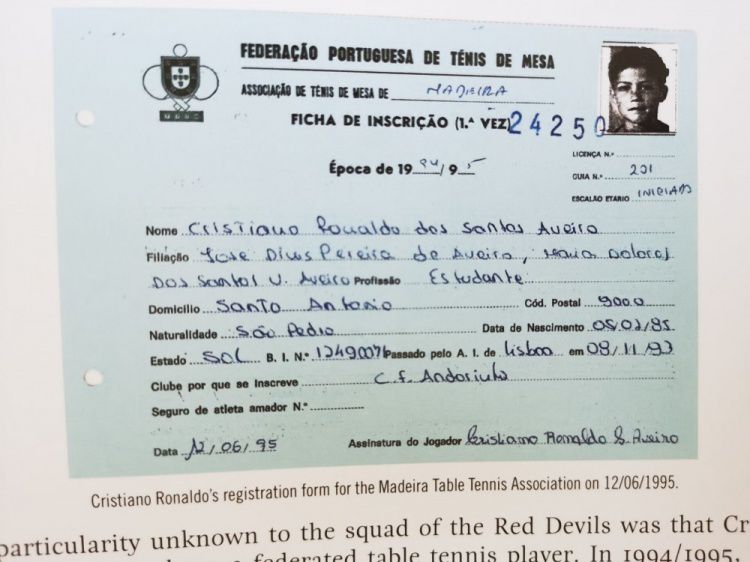 FEDERAÇÃO PORTUGUESA DE TÉNIS DE MESA
ASSOCIAÇÃO DE TÉNIS DE MESA DE MADEIRA
FICHA DE INSCRIÇÃO (1.ª VEZ) 24250
LICENÇA N.º
Época de 1994/95
GUIA N.º 201
ESCALÃO ETARIO INICIADO
Nome Cristiano Ronaldo dos Santos Aveiro
Filiação Jose Dinis Pereira de Aveiro, Maria Dolores
Dos Santos V. Aveiro Profissão Estudante
Domicílio Santo Antonio Cód. Postal 9000
Naturalidade São Pedro Data de Nascimento 05.02/85
Estado Sol B. I. N.º Passado pelo A. I. de Lisboa em
Clube por que se Inscreve C.F. Andorinha
Seguro de atleta amador N.º
Data 12/06/95 Assinatura do Jogador Cristiano Ronaldo S. Aveiro
Cristiano Ronaldo's registration form for the Madeira Table Tennis Association on 12/06/1995.
particularity unknown to the squad of the Red Devils was that Cr
federated table tennis player. In 1994/1995,